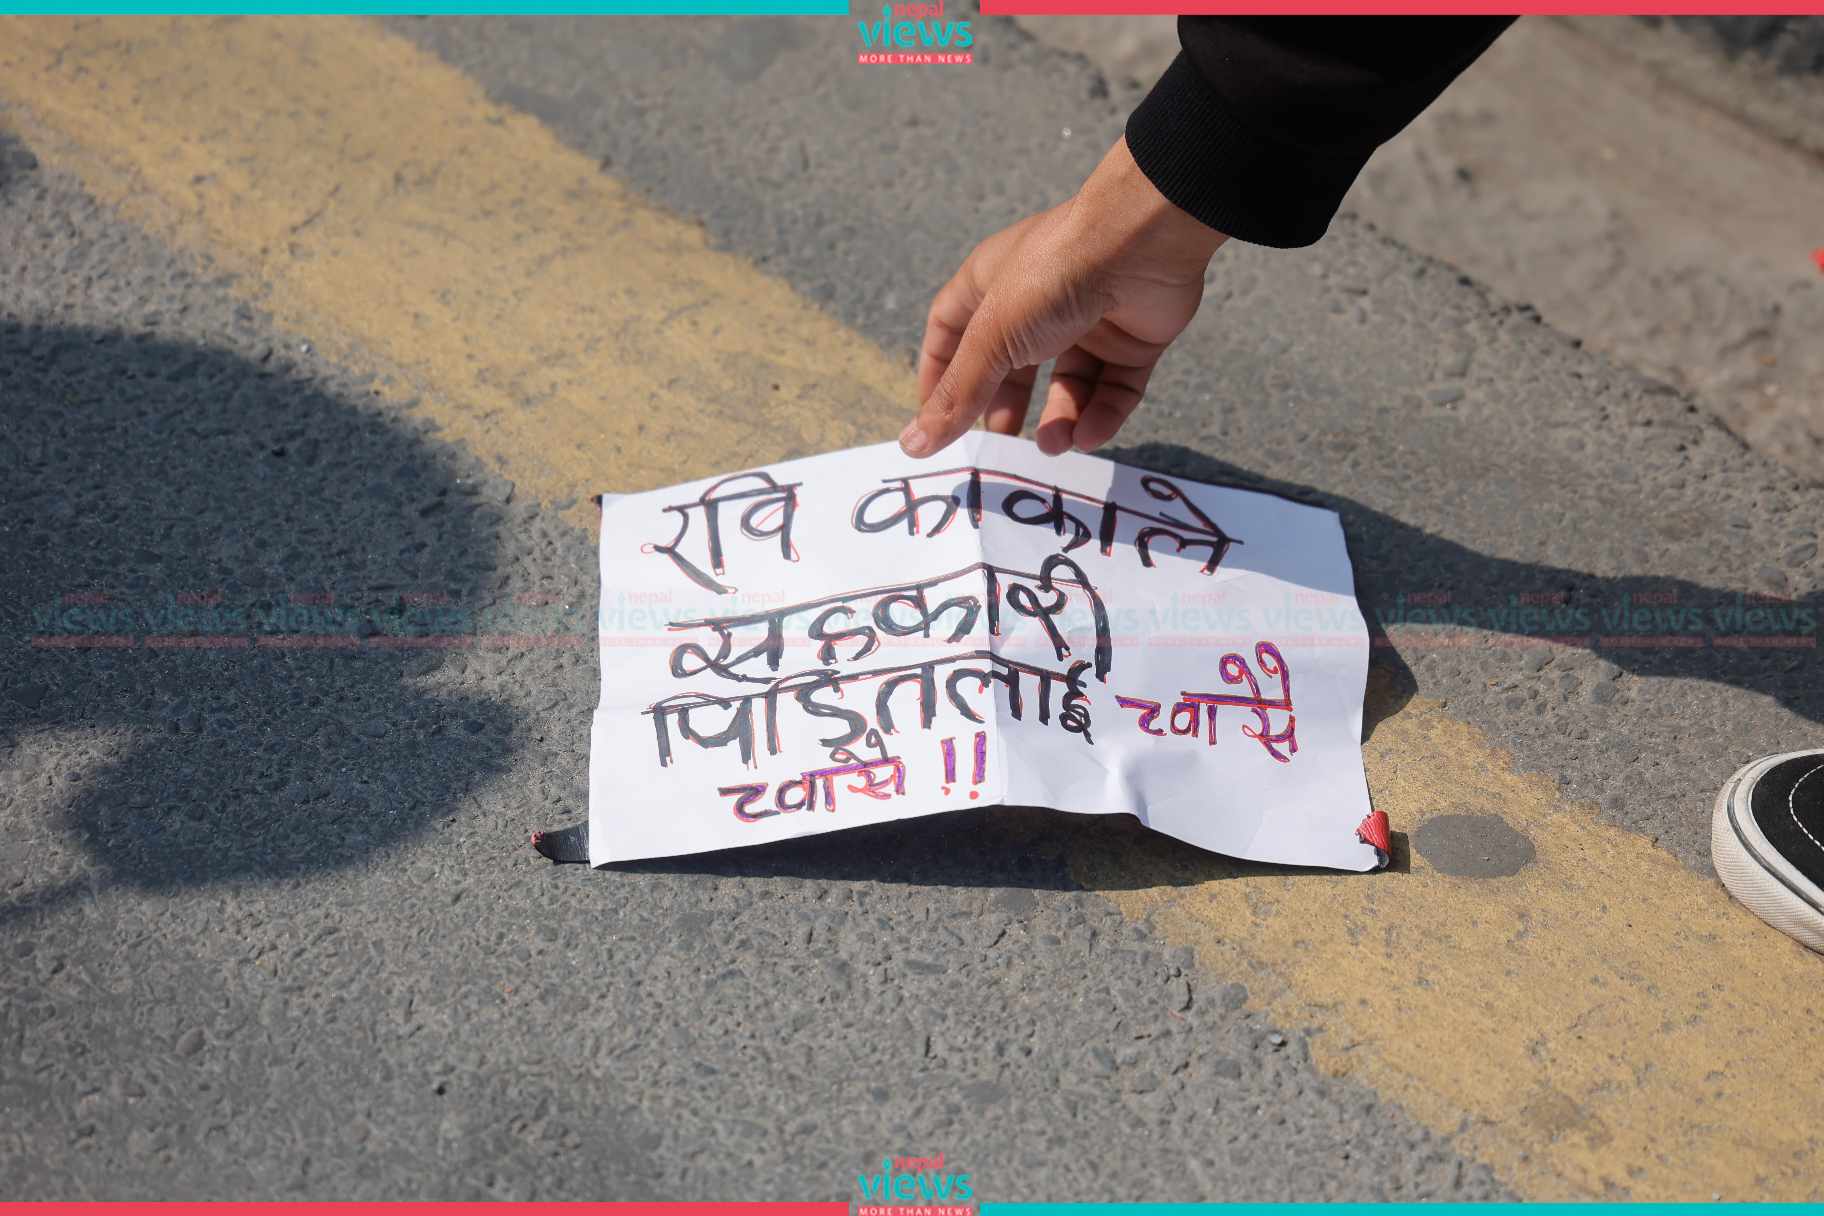 nepal
views
MORE THAN NEWS
रवि काकाले
सहकारी
पिडितलाई च्वासै
च्वासै !!
nepal views nepal views nepal views nepal views nepal views nepal views nepal views nepal views nepal views nepal views nepal views nepal views nepal views
nepal
views
MORE THAN NEWS